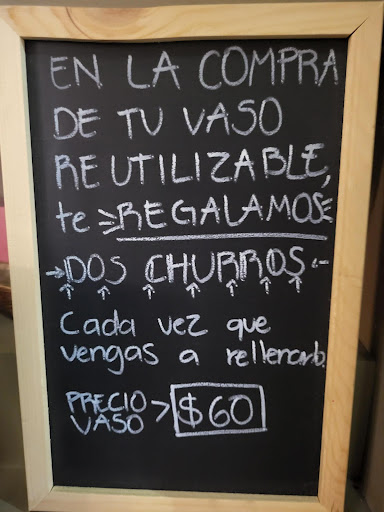 EN LA COMPRA
DE TU VASO
REUTILIZABLE,
te REGALAMOS
DOS CHURROS
Cada vez que
vengas a rellenarlo.
PRECIO
VASO > $60